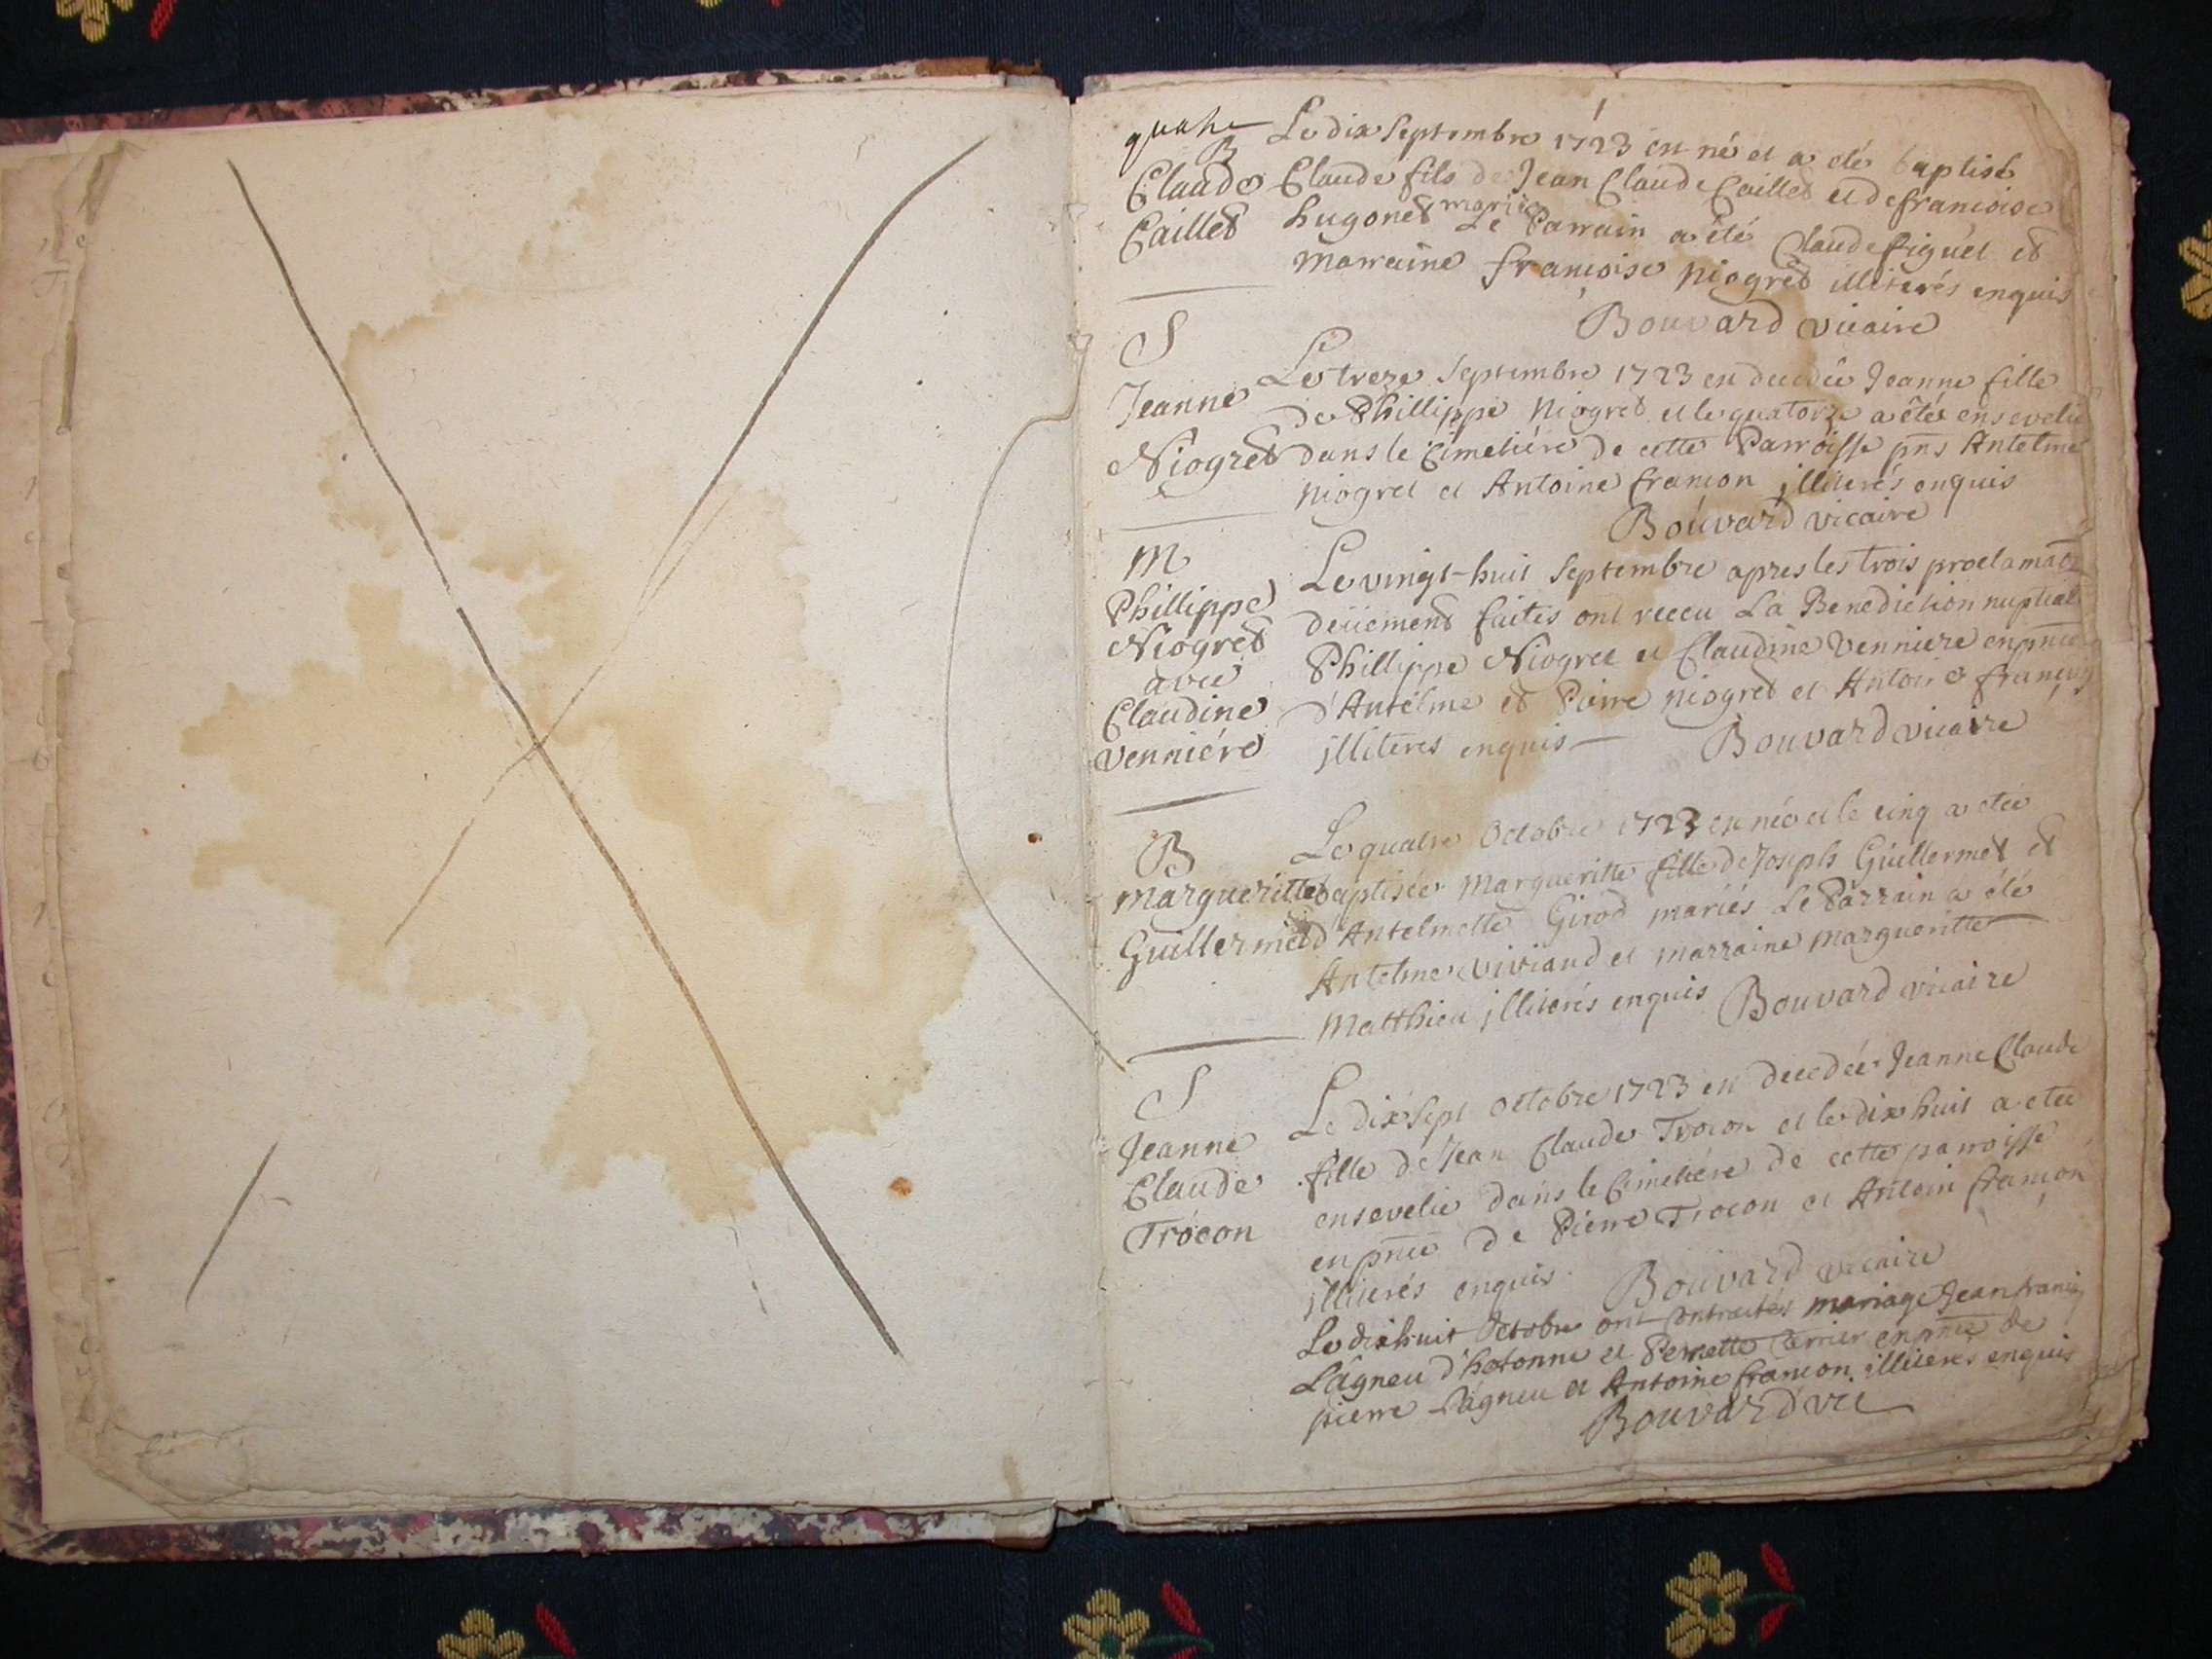 B
Claude
Caillet
Le dix Septembre 1723 est né et a eté baptisé
Claude fils de Jean Claude Caillet et de francoise
hugonet mariés Le Parrain a été Claude figuet et
marraine françoise Niogret illiterés enquis
Bouvard vicaire
S
Jeanne
Niogret
Le treze Septembre 1723 est decedée Jeanne fille
de Phillippe Niogret et le quatorze a êtée ensevelie
dans le Cimetiére de cette Parroisse pns Antelme
Niogret et Antoine françon jlliterés enquis
Bouvard vicaire
M
Phillippe
Niogret
avec
Claudine
Venniére
Le vingt-huit Septembre apres les trois proclamat
deüement faites ont receu La Benediction nuptial
Phillippe Niogret et Claudine Venniere en pnce
d'Antelme et Pierre Niogret et Antoine françon
jlliteres enquis Bouvard vicaire
B
Margueritte
Guillermet
Le quatre Octobre 1723 est née et le cinq a etée
baptisée Margueritte fille de Joseph Guillermet et
d'Antelmette Girod mariés Le Parrain a été
Antelme Viviand et marraine Margueritte
Matthieu jlliterés enquis Bouvard vicaire
S
Jeanne
Claude
Trocon
Le dix Sept Octobre 1723 est decedée Jeanne Claude
fille de Jean Claude Trocon et le dix huit a etée
ensevelie dans le Cimetiére de cette parroisse
en pnce de Pierre Trocon et Antoin françon
jlliterés enquis Bouvard vicaire
Le dix huit Octobre ont contractés mariage Jean franc
Lâgneu d'hotonne et Pernette Carrier en pnce de
pierre Lâgneu et Antoine françon illiterés enquis
Bouvard vic